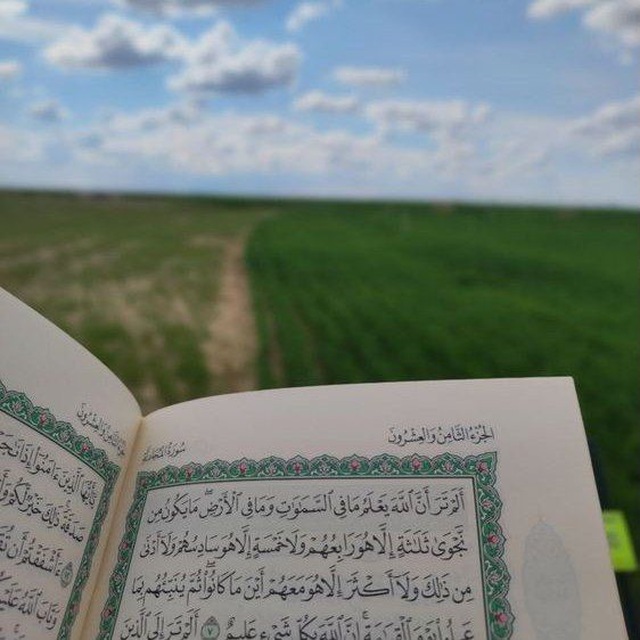 الجزء الثامن والعشرون
سورة المجادلة
أَلَمْ تَرَ أَنَّ اللَّهَ يَعْلَمُ مَا فِي السَّمَٰوَٰتِ وَمَا فِي الْأَرْضِ ۖ مَا يَكُونُ مِن
نَّجْوَىٰ ثَلَٰثَةٍ إِلَّا هُوَ رَابِعُهُمْ وَلَا خَمْسَةٍ إِلَّا هُوَ سَادِسُهُمْ وَلَا أَدْنَىٰ
مِن ذَٰلِكَ وَلَا أَكْثَرَ إِلَّا هُوَ مَعَهُمْ أَيْنَ مَا كَانُوا ۖ ثُمَّ يُنَبِّئُهُم بِمَا
عَمِلُوا يَوْمَ الْقِيَٰمَةِ ۚ إِنَّ اللَّهَ بِكُلِّ شَيْءٍ عَلِيمٌ ٧ أَلَمْ تَرَ إِلَى الَّذِينَ
يَٰأَيُّهَا الَّذِينَ ءَامَنُوا إِذَا
صَدَقَةً ۚ ذَٰلِكَ خَيْرٌ لَّكُمْ
ءَأَشْفَقْتُمْ أَن
وَتَابَ اللَّهُ عَلَيْكُمْ